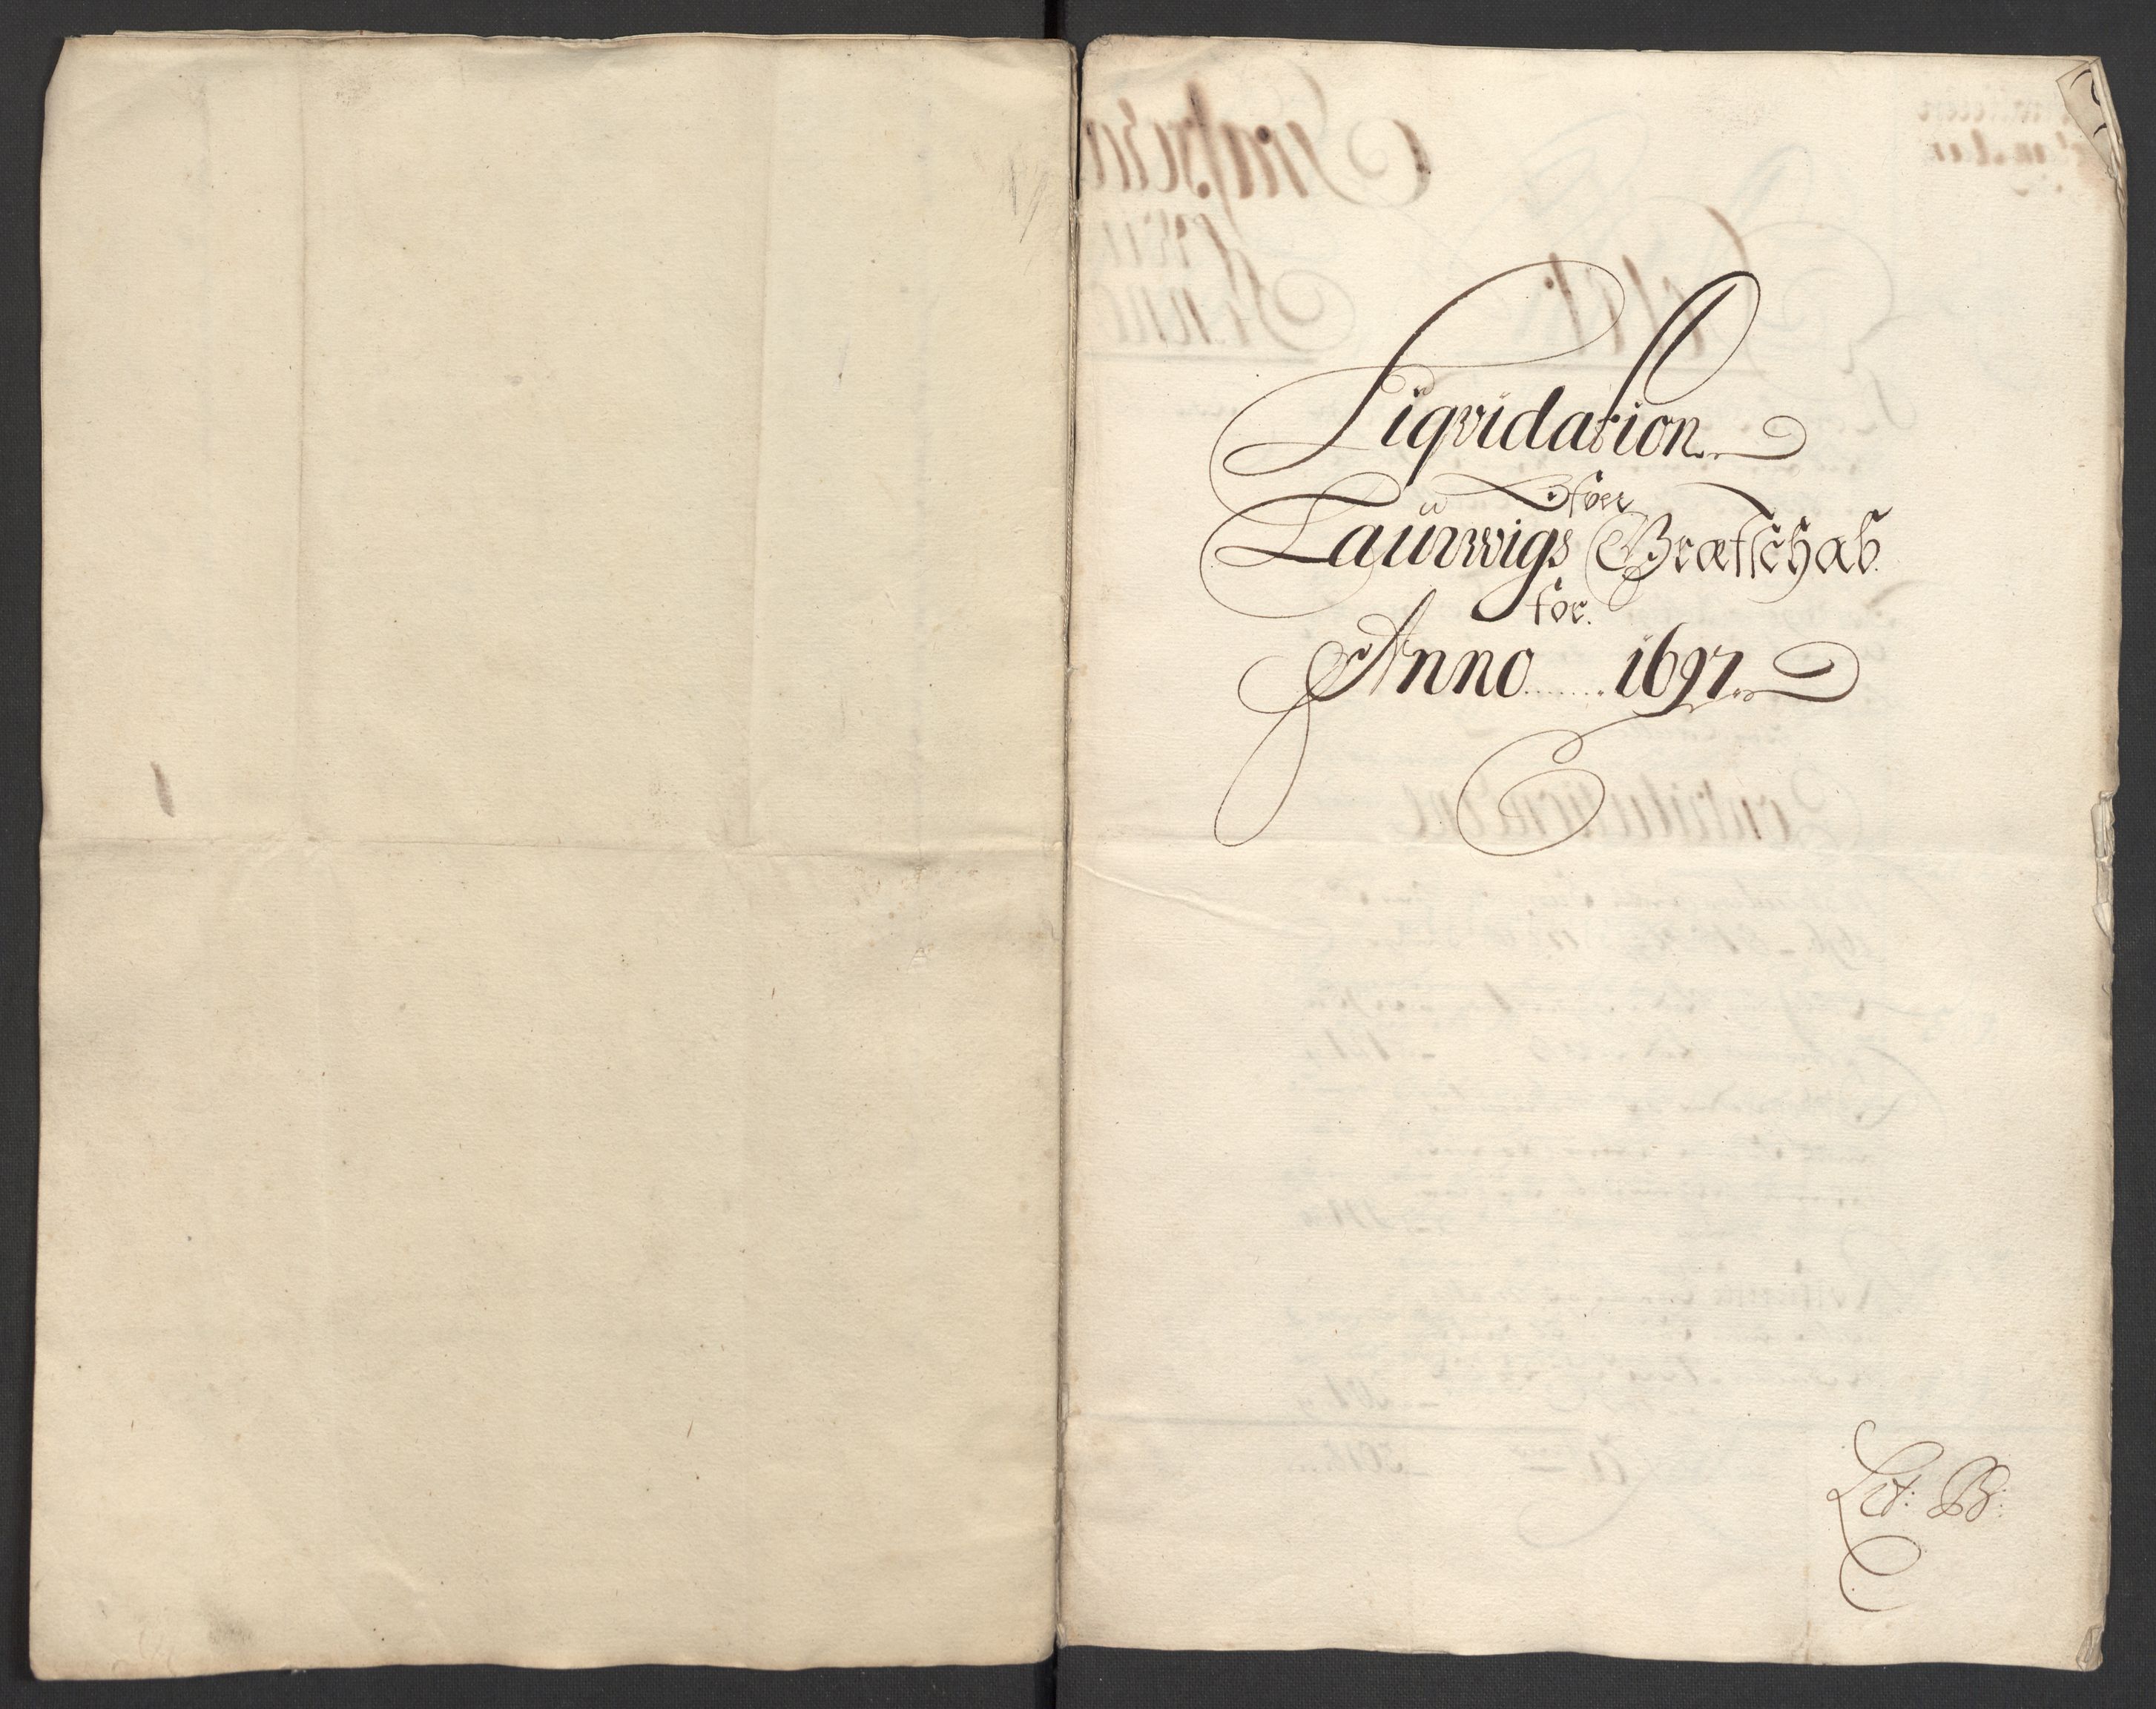 Liqvidation
Ofver
Laürwigs Grafschab
for
Anno 1697
Lit: B: